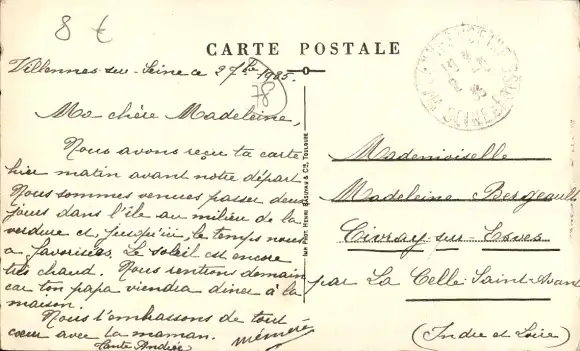 8 €
CARTE POSTALE
Villennes-sur-Seine ce 27 1935.
78
Ma chère Madeleine,
Nous avons reçu ta carte
hier matin avant notre départ
Nous sommes venues passer deux
jours dans l'île au milieu de la
verdure et jusqu'ici, le temps nous
a favorisées. Le soleil est encore
très chaud. Nous rentrons demain
car ton papa viendra diner à la
maison.
Nous t'embrassons de tout
cœur avec ta maman. mémère
Tante Andrée
TOULOUSE
Mademoiselle
Madeleine Bergeault
Civray-sur-Esves
par La Celle Saint-Avant
(Indre et Loire)